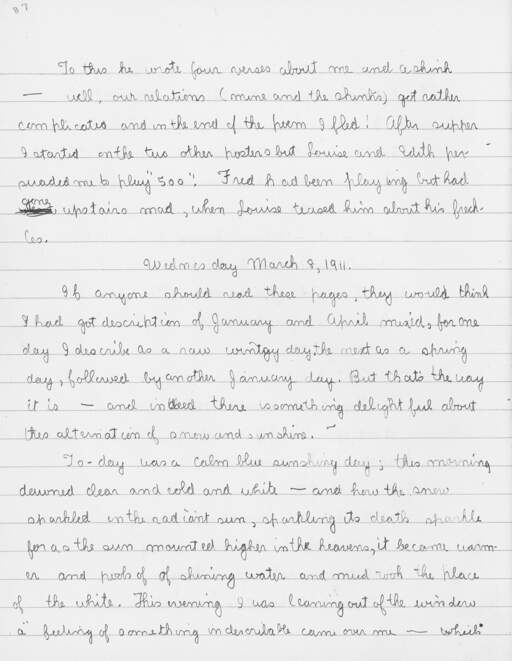 87
To this he wrote four verses about me and a skunk
— well, our relations (mine and the skunk's) got rather
complicated and in the end of the poem I fled! After supper
I started on the two other posters but Louise and Edith per-
suaded me to play "500". Fred had been playing but had
gone upstairs mad, when Louise teased him about his freck-
les.
Wednesday March 8, 1911.
If anyone should read these pages, they would think
I had got description of January and April mixed, for one
day I describe as a raw wintry day, the next as a spring
day, followed by another January day. But that's the way
it is — and indeed there is something delightful about
this alternation of snow and sunshine.
To-day was a calm blue sunshiny day; this morning
dawned clear and cold and white — and how the snow
sparkled in the radiant sun, sparkling its death sparkle
for as the sun mounted higher in the heavens, it became warm-
er and pools of of shining water and mud took the place
of the white. This evening I was leaning out of the window
a feeling of something indescribable came over me — which